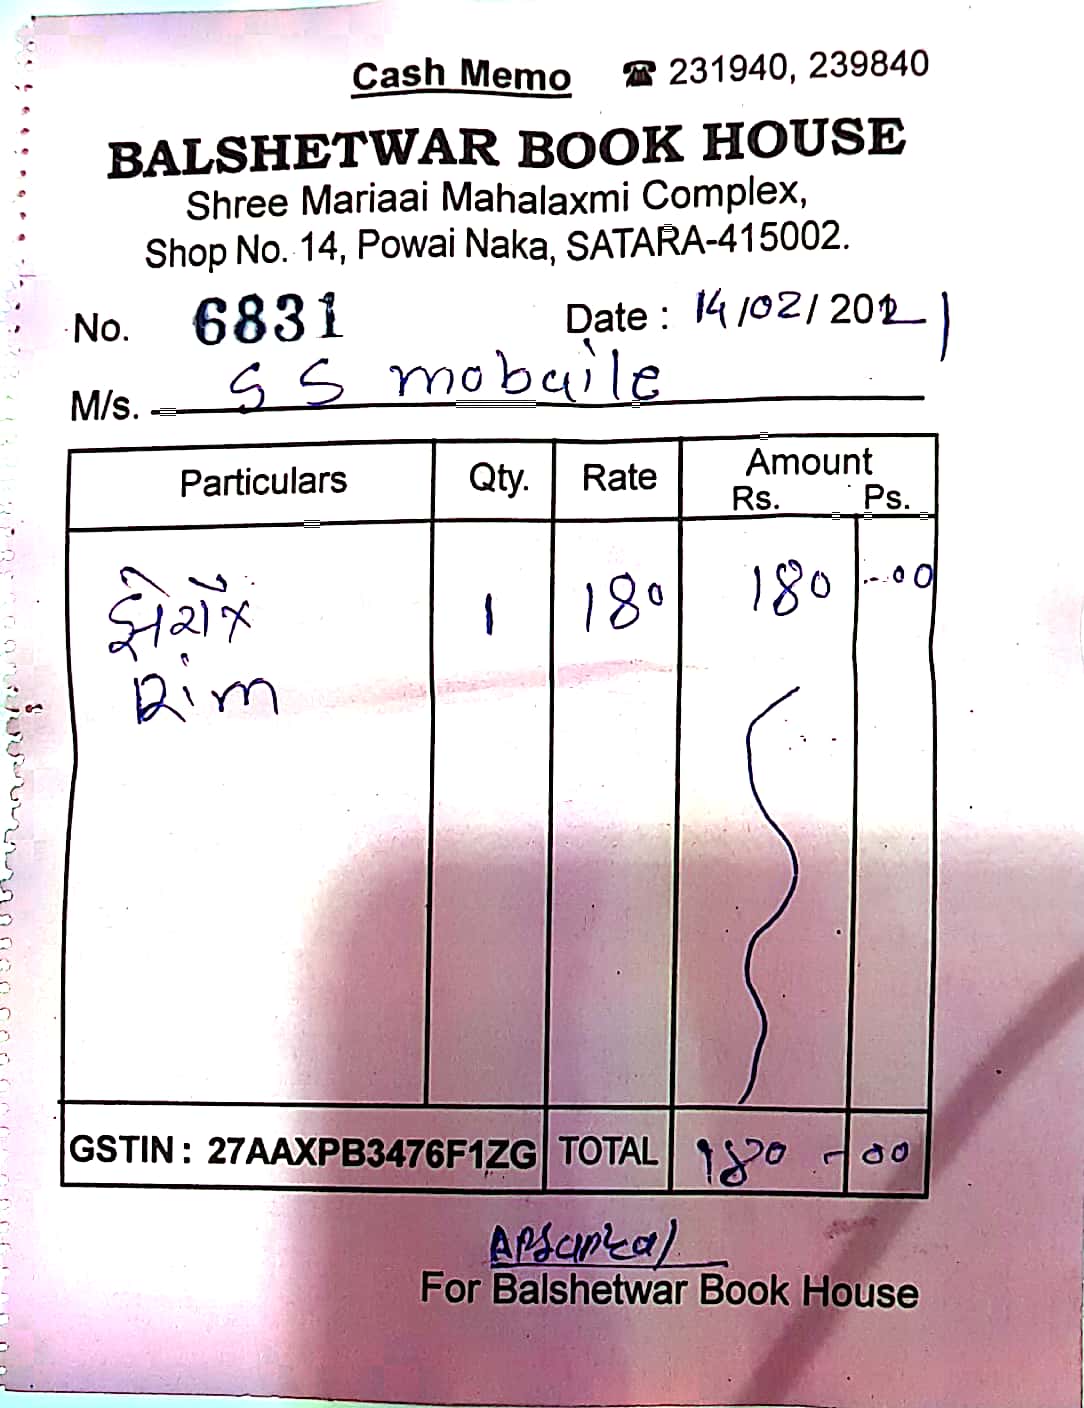 Cash Memo ☎ 231940, 239840
BALSHETWAR BOOK HOUSE
Shree Mariaai Mahalaxmi Complex,
Shop No. 14, Powai Naka, SATARA-415002.
No. 6831 Date : 14/02/2021
M/s. S S mobaile
Particulars Qty. Rate Amount
Rs. Ps.
झेरॉक्स 1 180 180 -00
Rim
GSTIN : 27AAXPB3476F1ZG TOTAL 180 - 00
For Balshetwar Book House